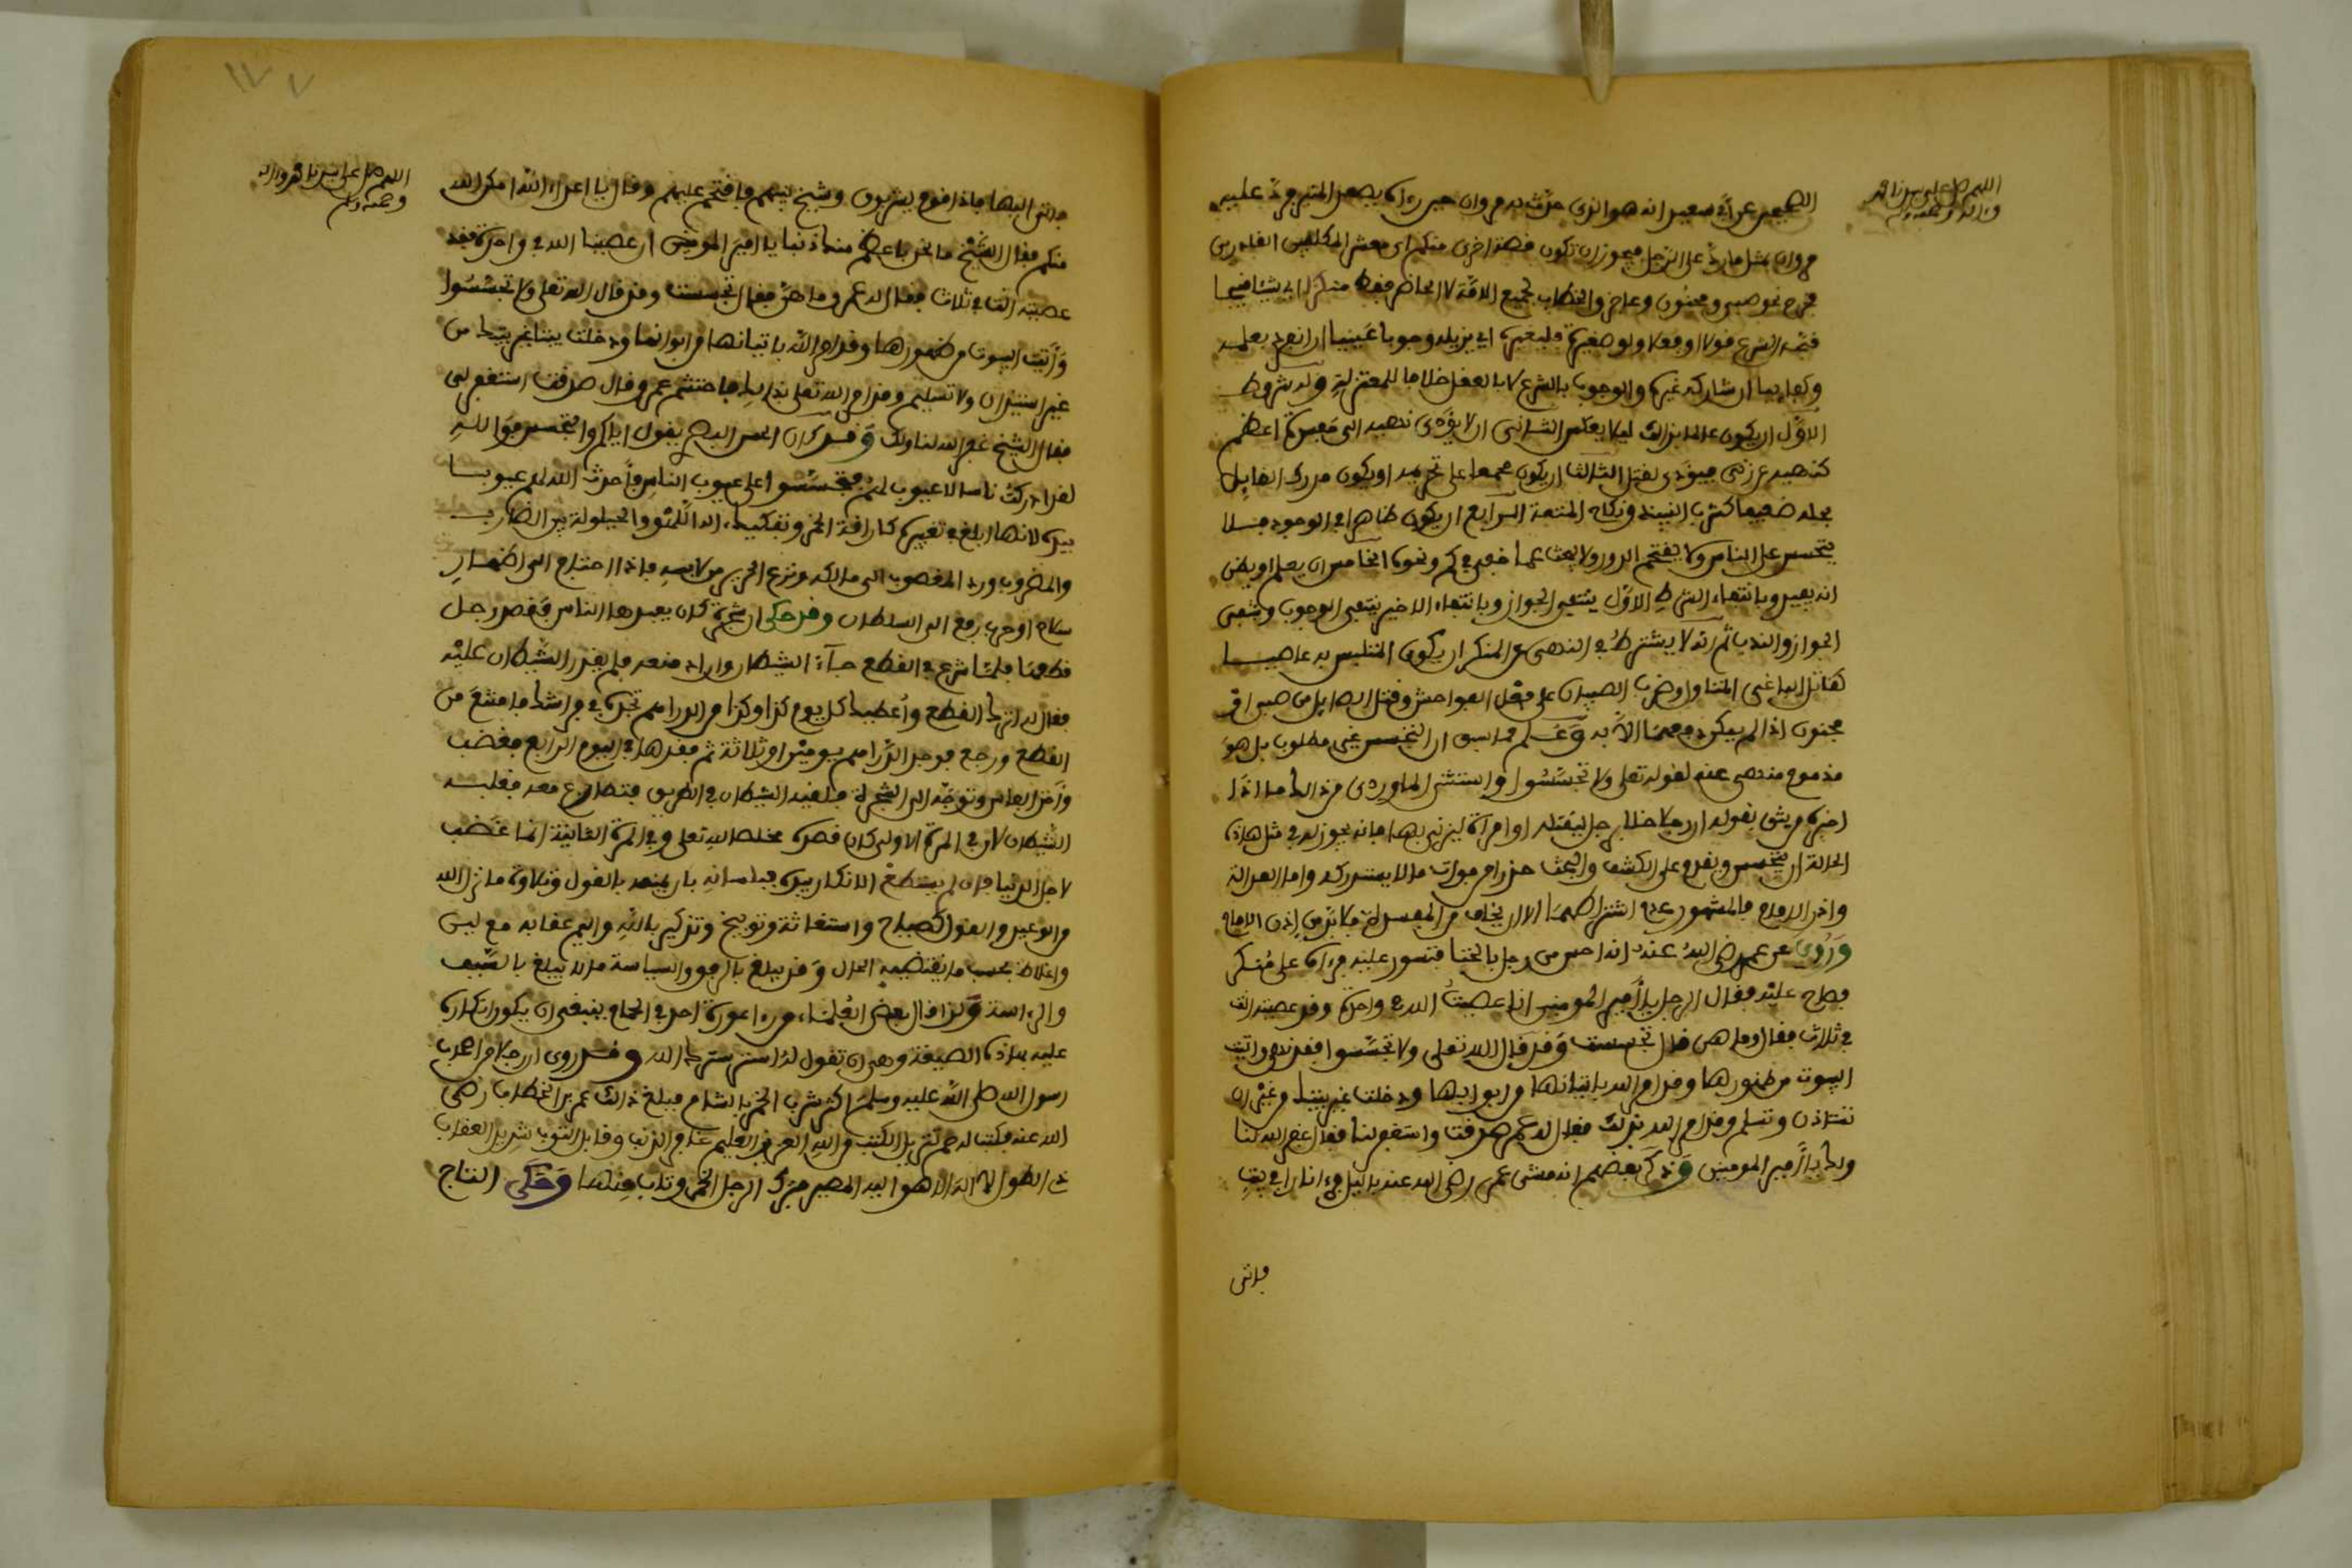 اللهم صل على سيدنا محمد
وءاله وصحبه وسلم
الصحيحين عن أبي سعيد انه هو الذي حدث به مروان حين رءاه يصعد المنبر فرد عليه
مروان بمثل ما رد على الرجل فيجوز ان تكون قصة اخرى منكم اي معشر المكلفين القادرين
فخرج نحو صبي ومجنون وعاجز والخطاب لجميع الامة لا الحاضر فقط منكرا اي شيئا قبيحا
قبحه الشرع قولا او فعلا ولو صغيرة فليغيره اي يزيله وجوبا عينيا ان انفرد بعلمه
وكفايا ان شاركه غيره والوجوب بالشرع لا بالعقل خلافا للمعتزلة وله شروط
الاول ان يكون عالما بذلك ليلا يعكس الثاني ان لا يؤدى نهيه الى مفسدة اعظم
كنهيه عن زنى فيؤدى لقتل الثالث ان يكون مجمعا على تحريمه او يكون مدرك القايل
بحله ضعيفا كشرب النبيذ ونكاح المتعة الرابع ان يكون ظاهرا في الوجود فلا
يتجسس على الناس ولا يقتحم الدور ولا يبحث عما خفي في كم ونحوه الخامس ان يعلم او يظن
انه يفيد وبانتفاء الشرط الاول ينتفي الجواز وبانتفاء الاخير ينتفي الوجوب ويبقى
الجواز والندب ثم انه لا يشترط في النهي عن المنكر ان يكون المتلبس به عاصيا
كقاتل الباغي المتناول وضرب الصبيان على فعل الفواحش وقتل الصايل من صبي او
مجنون اذا لم يمكن دفعهما الا به وعلم مما سبق ان التجسس غير مطلوب بل هو
مذموم منهي عنه لقوله تعلى ولا تجسسوا واستثنى الماوردي من ذالك ما اذا
اخبره من يثق بقوله ان رجلا خلا برجل ليقتله او امرأة ليزني بها فانه يجوز له في مثل هاذه
الحالة ان يتجسس ويقدم على الكشف والبحث حذرا من فوات ما لا يستدرك واما العدالة
واذن الامام فالمشهور عدم اشتراطهما الا ان يخاف من المفسدة فلا بد من اذن الامام
وروي عن عمر رضي الله عنه انه احس من رجل بالخنا فتسور عليه فرءاه على منكر
فصاح عليه فقال الرجل يا أمير المومنين انا عصيت الله في واحدة وقد عصيته انت
في ثلاث فقال وما هي قال تجسست وقد قال الله تعلى ولا تجسسوا فقد نهى واتيت
البيوت من ظهورها وقد امر الله باتيانها من ابوابها ودخلت غير بيتك من غير ان
تستاذن وتسلم وقد امر الله بذلك فقال له عمر صدقت واستغفر لنا فقال غفر الله لنا
ولك يا أمير المومنين وذكر بعضهم انه مشى عمر رضي الله عنه بالليل فرءا نارا في بيت
فاتى
اللهم صل على سيدنا محمد وءاله
وصحبه وسلم
فاتى اليها فاذا قوم يشربون وشيخ بينهم فاقتحم عليهم وقال يا اعداء الله امكن الله
منكم فقال الشيخ ما نحن باعظم منك ذنبا يا امير المومنين ان عصينا الله في واحدة فقد
عصيته انت في ثلاث فقال له عمر وما هن فقال تجسست وقد قال الله تعلى ولا تجسسوا
وأتيت البيوت من ظهورها وقد امر الله باتيانها من ابوابها ودخلت بيتا غير بيتك من
غير استيذان ولا تسليم وقد امر الله تعلى بذالك فاحتشم عمر وقال صدقت استغفر لي
فقال الشيخ غفر الله لنا ولك وقد كان الحسن البصري يقول اياكم والتجسس فوالله
لقد ادركت ناسا لا عيوب لهم فتجسسوا على عيوب الناس فأحدث الله لهم عيوبا
بيده لانها ابلغ في تغييره كاراقة الخمر وتفكيك ءالة اللهو والحيلولة بين الضارب
والمضروب ورد المغصوب الى مالكه ونزع الحرير من لابسه فاذا احتاج الى اظهار
سلاح او حرب رفع الى السلطان وقد حكى ان شجرة كان يعبدها الناس فقصد رجل
قطعها فلما شرع في القطع جاءه الشيطان واراد منعه فلم يقدر الشيطان عليه
فقال له اترك القطع وأعطيك كل يوم كذا وكذا من الدراهم تجده في فراشك فامتنع من
القطع ورجع فوجد الدراهم يومين او ثلاثة ثم فقدها في اليوم الرابع فغضب
وأخذ الفاس وتوجه الى الشجرة فلقيه الشيطان في الطريق فتصارع معه فغلبه
الشيطان لان في المرة الاولى كان قصده مخلصا لله تعلى وفي المرة الثانية انما غضب
لاجل الدنيا فان لم يستطع الانكار بيده فبلسانه بان يمنعه بالقول وتلاوة ما انزل الله
من الوعيد والقول كصياح واستغاثة وتوبيخ وتذكير بالله واليم عقابه مع لين
واغلاظ بحسب ما يقتضيه الحال وقد يبلغ بالرفق والسياسة ما لا يبلغ بالسيف
والرياسة ولذا قال بعض العلماء من رءا عورة احد في الحمام ينبغي ان يكون انكاره
عليه بهاذه الصيغة وهي ان يقول له استر سترك الله وقد روى ان رجلا من اصحاب
رسول الله صلى الله عليه وسلم اكثر شرب الخمر بالشام فبلغ ذالك عمر بن الخطاب رضي
الله عنه فكتب له حم تنزيل الكتب من الله العزيز العليم غافر الذنب وقابل التوب شديد العقاب
ذي الطول لا اله الا هو اليه المصير فترك الرجل الخمر وتاب منها وحكى التاج